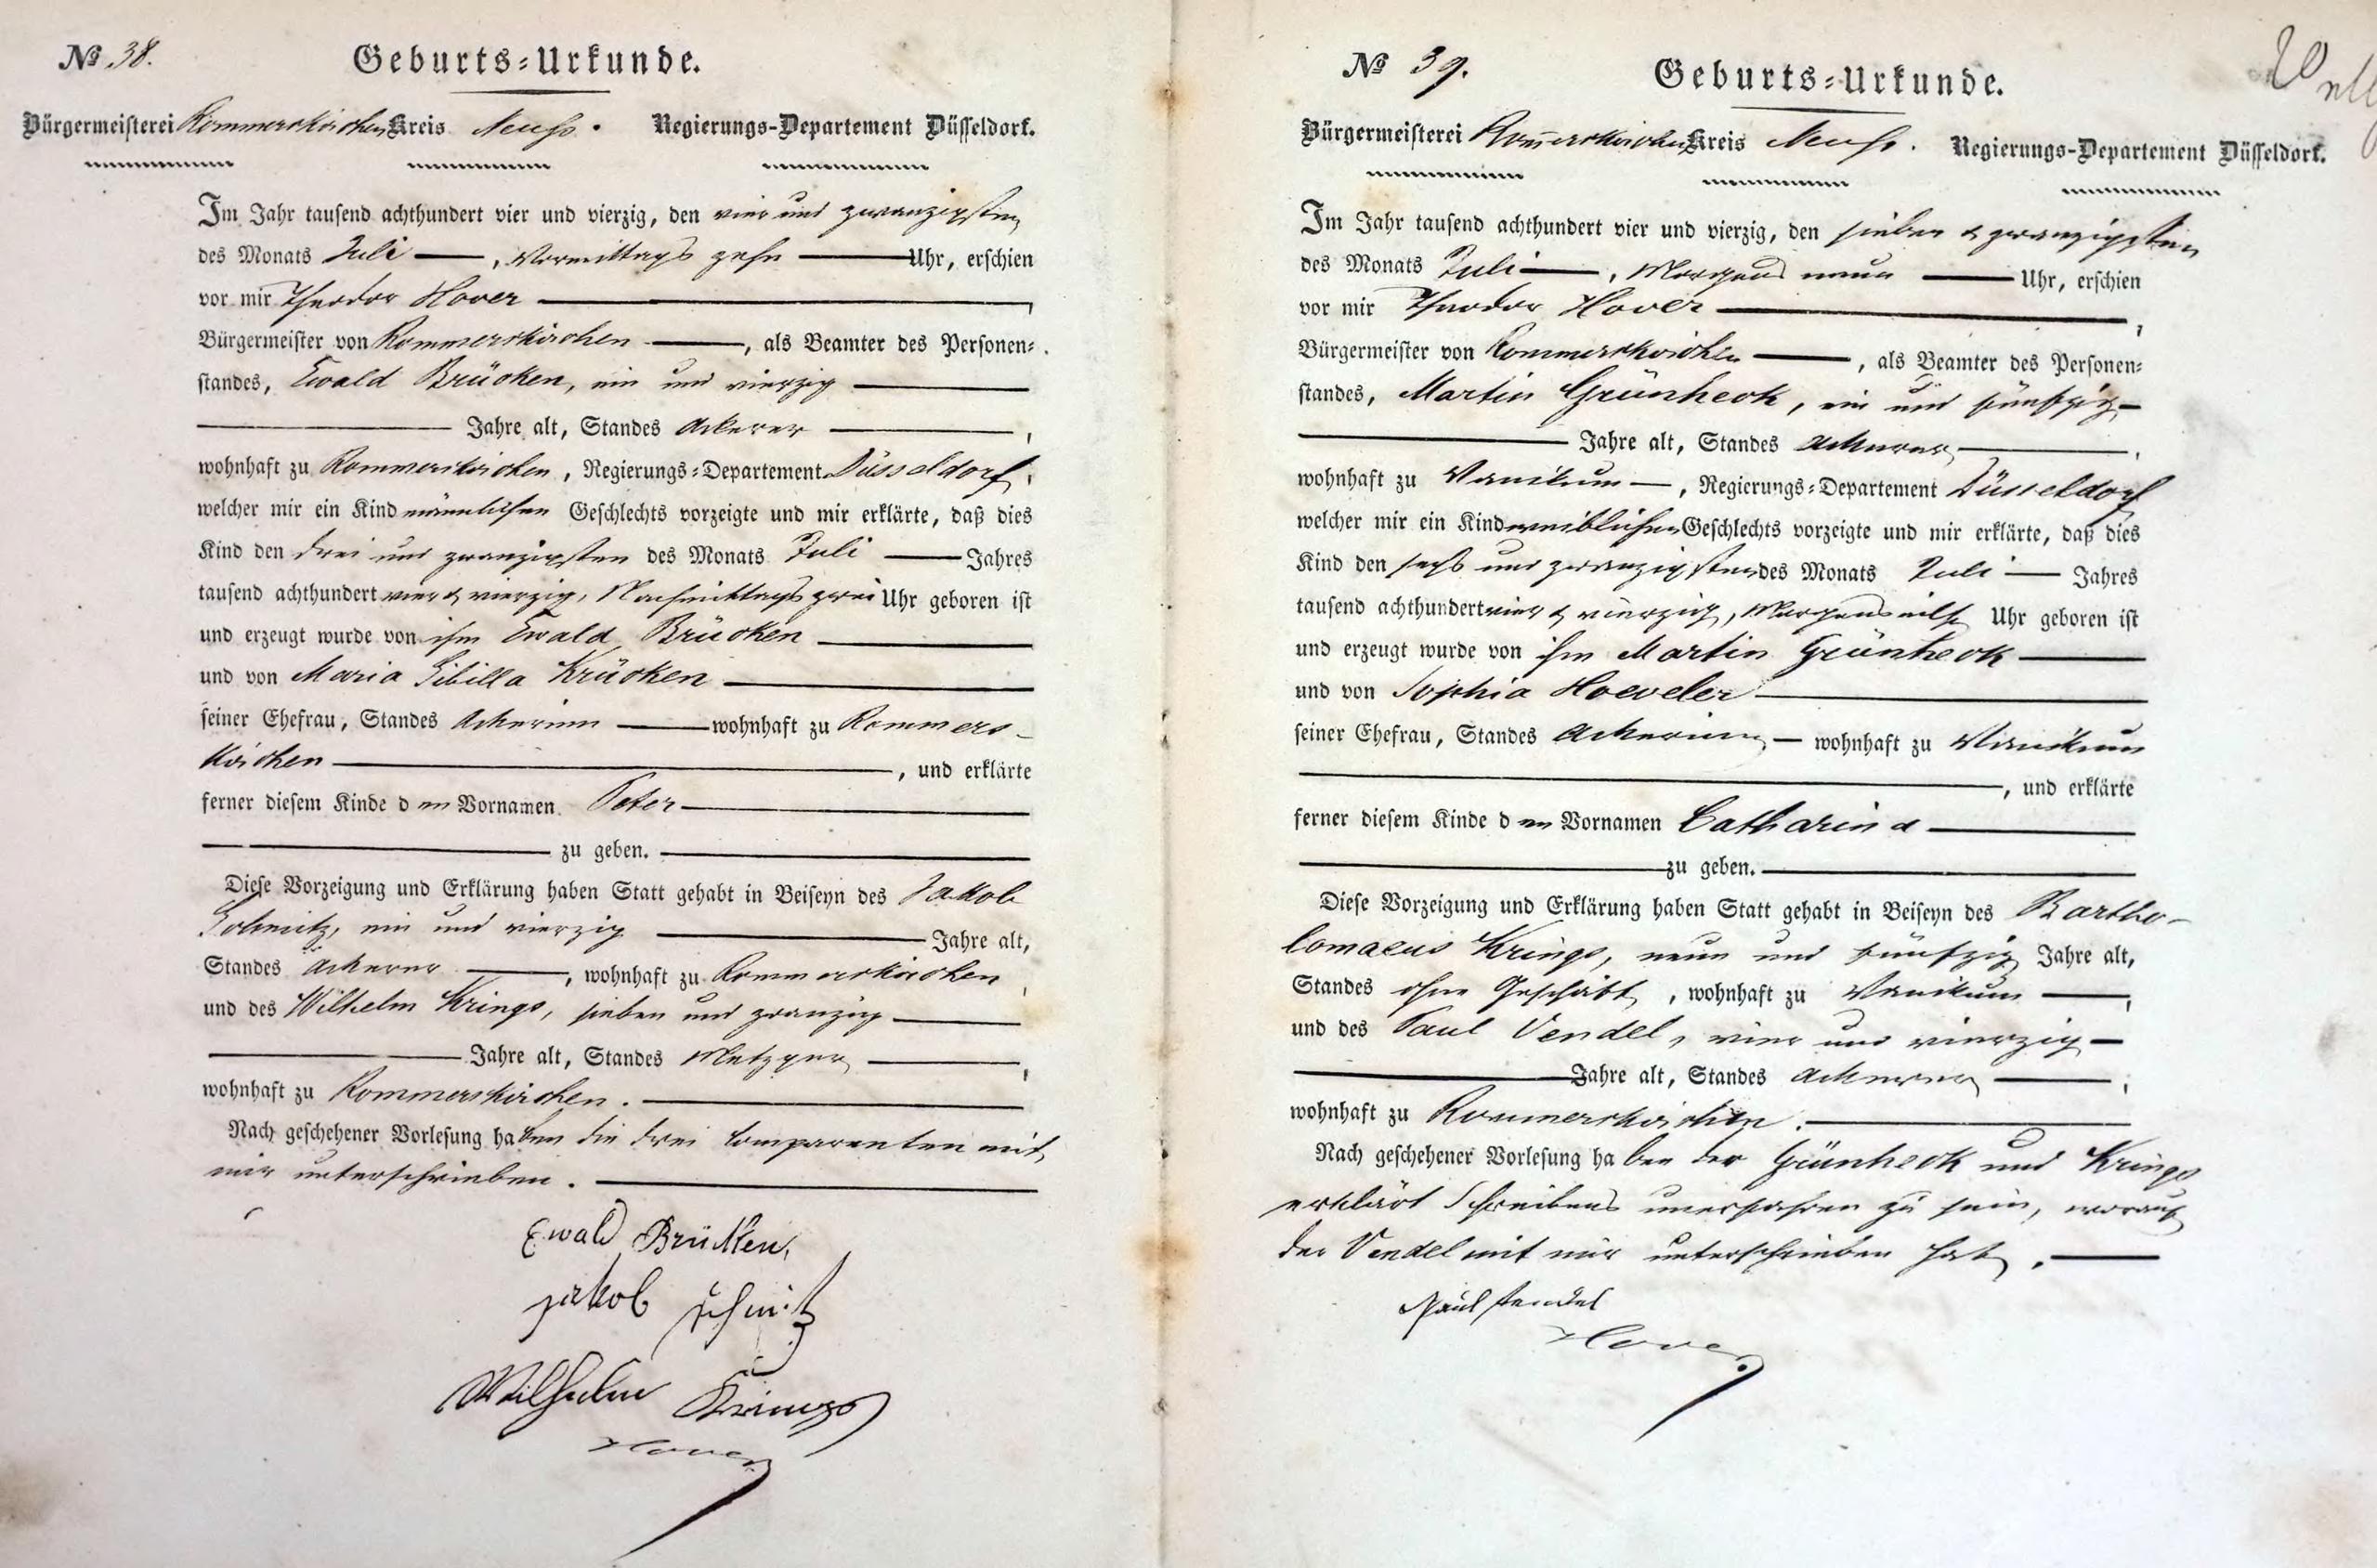 № 38.
Geburts-Urkunde.
Bürgermeisterei Rommerskirchen Kreis Neuss. Regierungs-Departement Düsseldorf.
Im Jahr tausend achthundert vier und vierzig, den vier und zwanzigsten
des Monats Juli —, Vormittags zehn — Uhr, erschien
vor mir Theodor Hover —,
Bürgermeister von Rommerskirchen —, als Beamter des Personen-
standes, Ewald Brücken, ein und vierzig —
— Jahre alt, Standes Ackerer —,
wohnhaft zu Rommerskirchen, Regierungs-Departement Düsseldorf,
welcher mir ein Kind männlichen Geschlechts vorzeigte und mir erklärte, daß dies
Kind den drei und zwanzigsten des Monats Juli — Jahres
tausend achthundert vier & vierzig, Nachmittags zwei Uhr geboren ist
und erzeugt wurde von ihm Ewald Brücken —
und von Maria Sibilla Krücken —
seiner Ehefrau, Standes Ackerinn — wohnhaft zu Rommers-
kirchen —, und erklärte
ferner diesem Kinde den Vornamen Peter —
— zu geben. —
Diese Vorzeigung und Erklärung haben Statt gehabt in Beiseyn des Jakob
Schmitz, ein und vierzig — Jahre alt,
Standes Ackerer —, wohnhaft zu Rommerskirchen,
und des Wilhelm Krings, sieben und zwanzig —
— Jahre alt, Standes Metzger —,
wohnhaft zu Rommerskirchen. —
Nach geschehener Vorlesung haben die drei Comparenten mit
mir unterschrieben. —
Ewald Brücken,
Jakob Schmitz
Wilhelm Krings
Hover
№ 39.
Geburts-Urkunde.
Bürgermeisterei Rom̅erskirchen Kreis Neuss. Regierungs-Departement Düsseldorf.
Im Jahr tausend achthundert vier und vierzig, den sieben & zwanzigsten
des Monats Juli —, Morgens neun — Uhr, erschien
vor mir Theodor Hover —,
Bürgermeister von Rommerskirchen —, als Beamter des Personen-
standes, Martin Grünheck, ein und fünfzig —
— Jahre alt, Standes Ackerer —,
wohnhaft zu Vanikum —, Regierungs-Departement Düsseldorf
welcher mir ein Kind weiblichen Geschlechts vorzeigte und mir erklärte, daß dies
Kind den sechs und zwanzigsten des Monats Juli — Jahres
tausend achthundert vier & vierzig, Morgens eilf Uhr geboren ist
und erzeugt wurde von ihm Martin Grünheck —
und von Sophia Hoeveler —
seiner Ehefrau, Standes Ackerinn — wohnhaft zu Vanikum
—, und erklärte
ferner diesem Kinde den Vornamen Catharina —
— zu geben. —
Diese Vorzeigung und Erklärung haben Statt gehabt in Beiseyn des Bartho-
lomaeus Krings, neun und fünfzig Jahre alt,
Standes ohne Geschäft, wohnhaft zu Vanikum —,
und des Paul Vendel, vier und vierzig —
— Jahre alt, Standes Ackerer —,
wohnhaft zu Rommerskirchen. —
Nach geschehener Vorlesung haben der Grünheck und Krings
erklärt Schreibens unerfahren zu sein, worauf
der Vendel mit mir unterschrieben hat. —
Paul Fendel
Hover